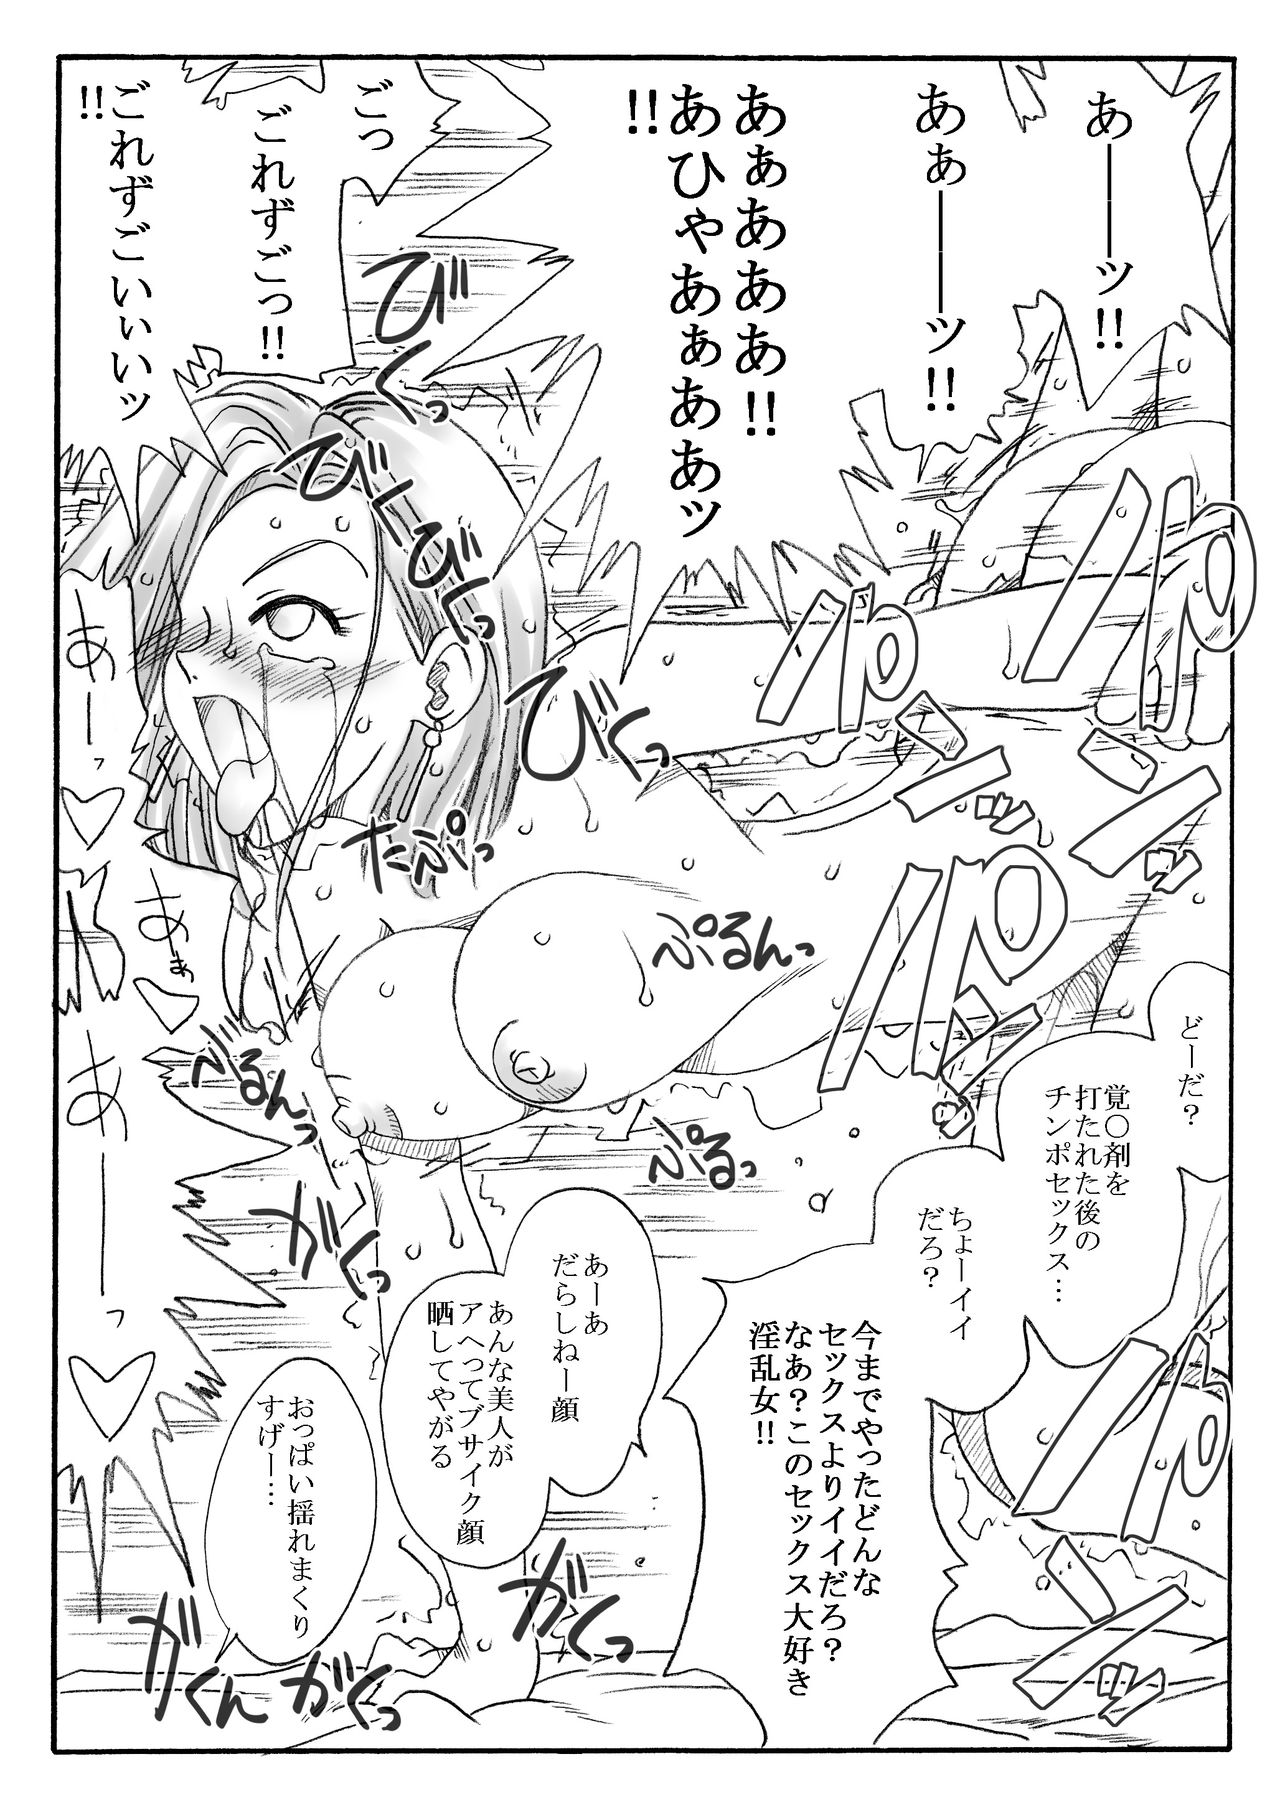 あーーッ!!
あぁーーッ!!
あぁあああ!!
あひゃあぁああッ
!!
ごっ
ごれずごっ!!
ごれずごいぃいッ
!!
びくっ
びーびくっ
びくっ
パパンッ
パンッ
パンッ
たぷっ
ぷるんっ
ぷるっ
ぶるんっ
がくっ
あーっ♡
あぁ♡
あーーっ♡
どーだ?
覚〇剤を
打たれた後の
チンポセックス…
ちょーイイ
だろ?
今までやったどんな
セックスよりイイだろ?
なあ?このセックス大好き
淫乱女!!
あーあ
だらしねー顔
あんな美人が
アへってブサイク顔
晒してやがる
おっぱい揺れまくり
すげー…
パンッ
がくっ
がくん
がくっ